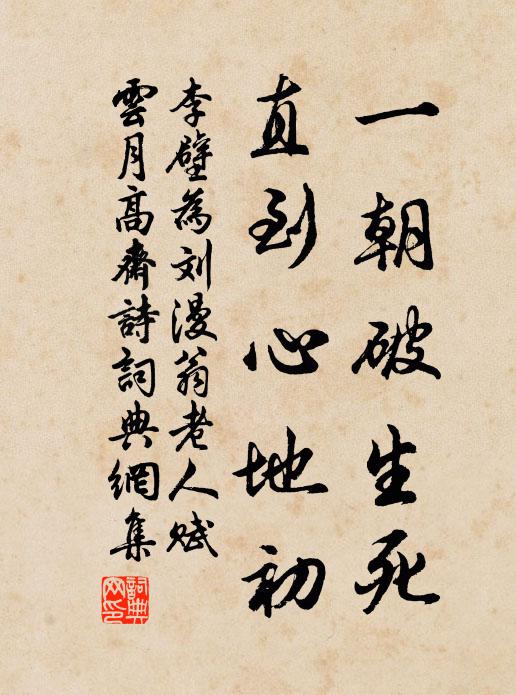 一朝破生死
直到心地初
李壁為刘漫翁老人賦
雲月高齋詩詞典網集
詞典网印